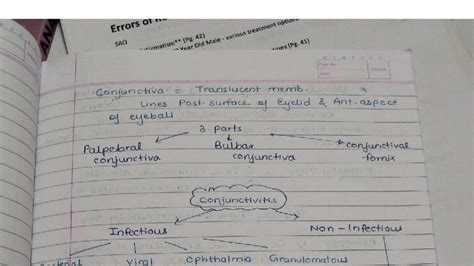 Errors of
SAQ
(Pg. 42)
Year Old Male - various treatment options
(Pg. 41)
Conjunctiva = Translucent memb.
Lines Post. surface of Eyelid & Ant. aspect
of eyeball
3 parts
Palpebral conjunctiva
Bulbar conjunctiva
conjunctival fornix
Conjunctivitis
Infectious
Non - Infectious
Viral
Ophthalmia
Granulomatous